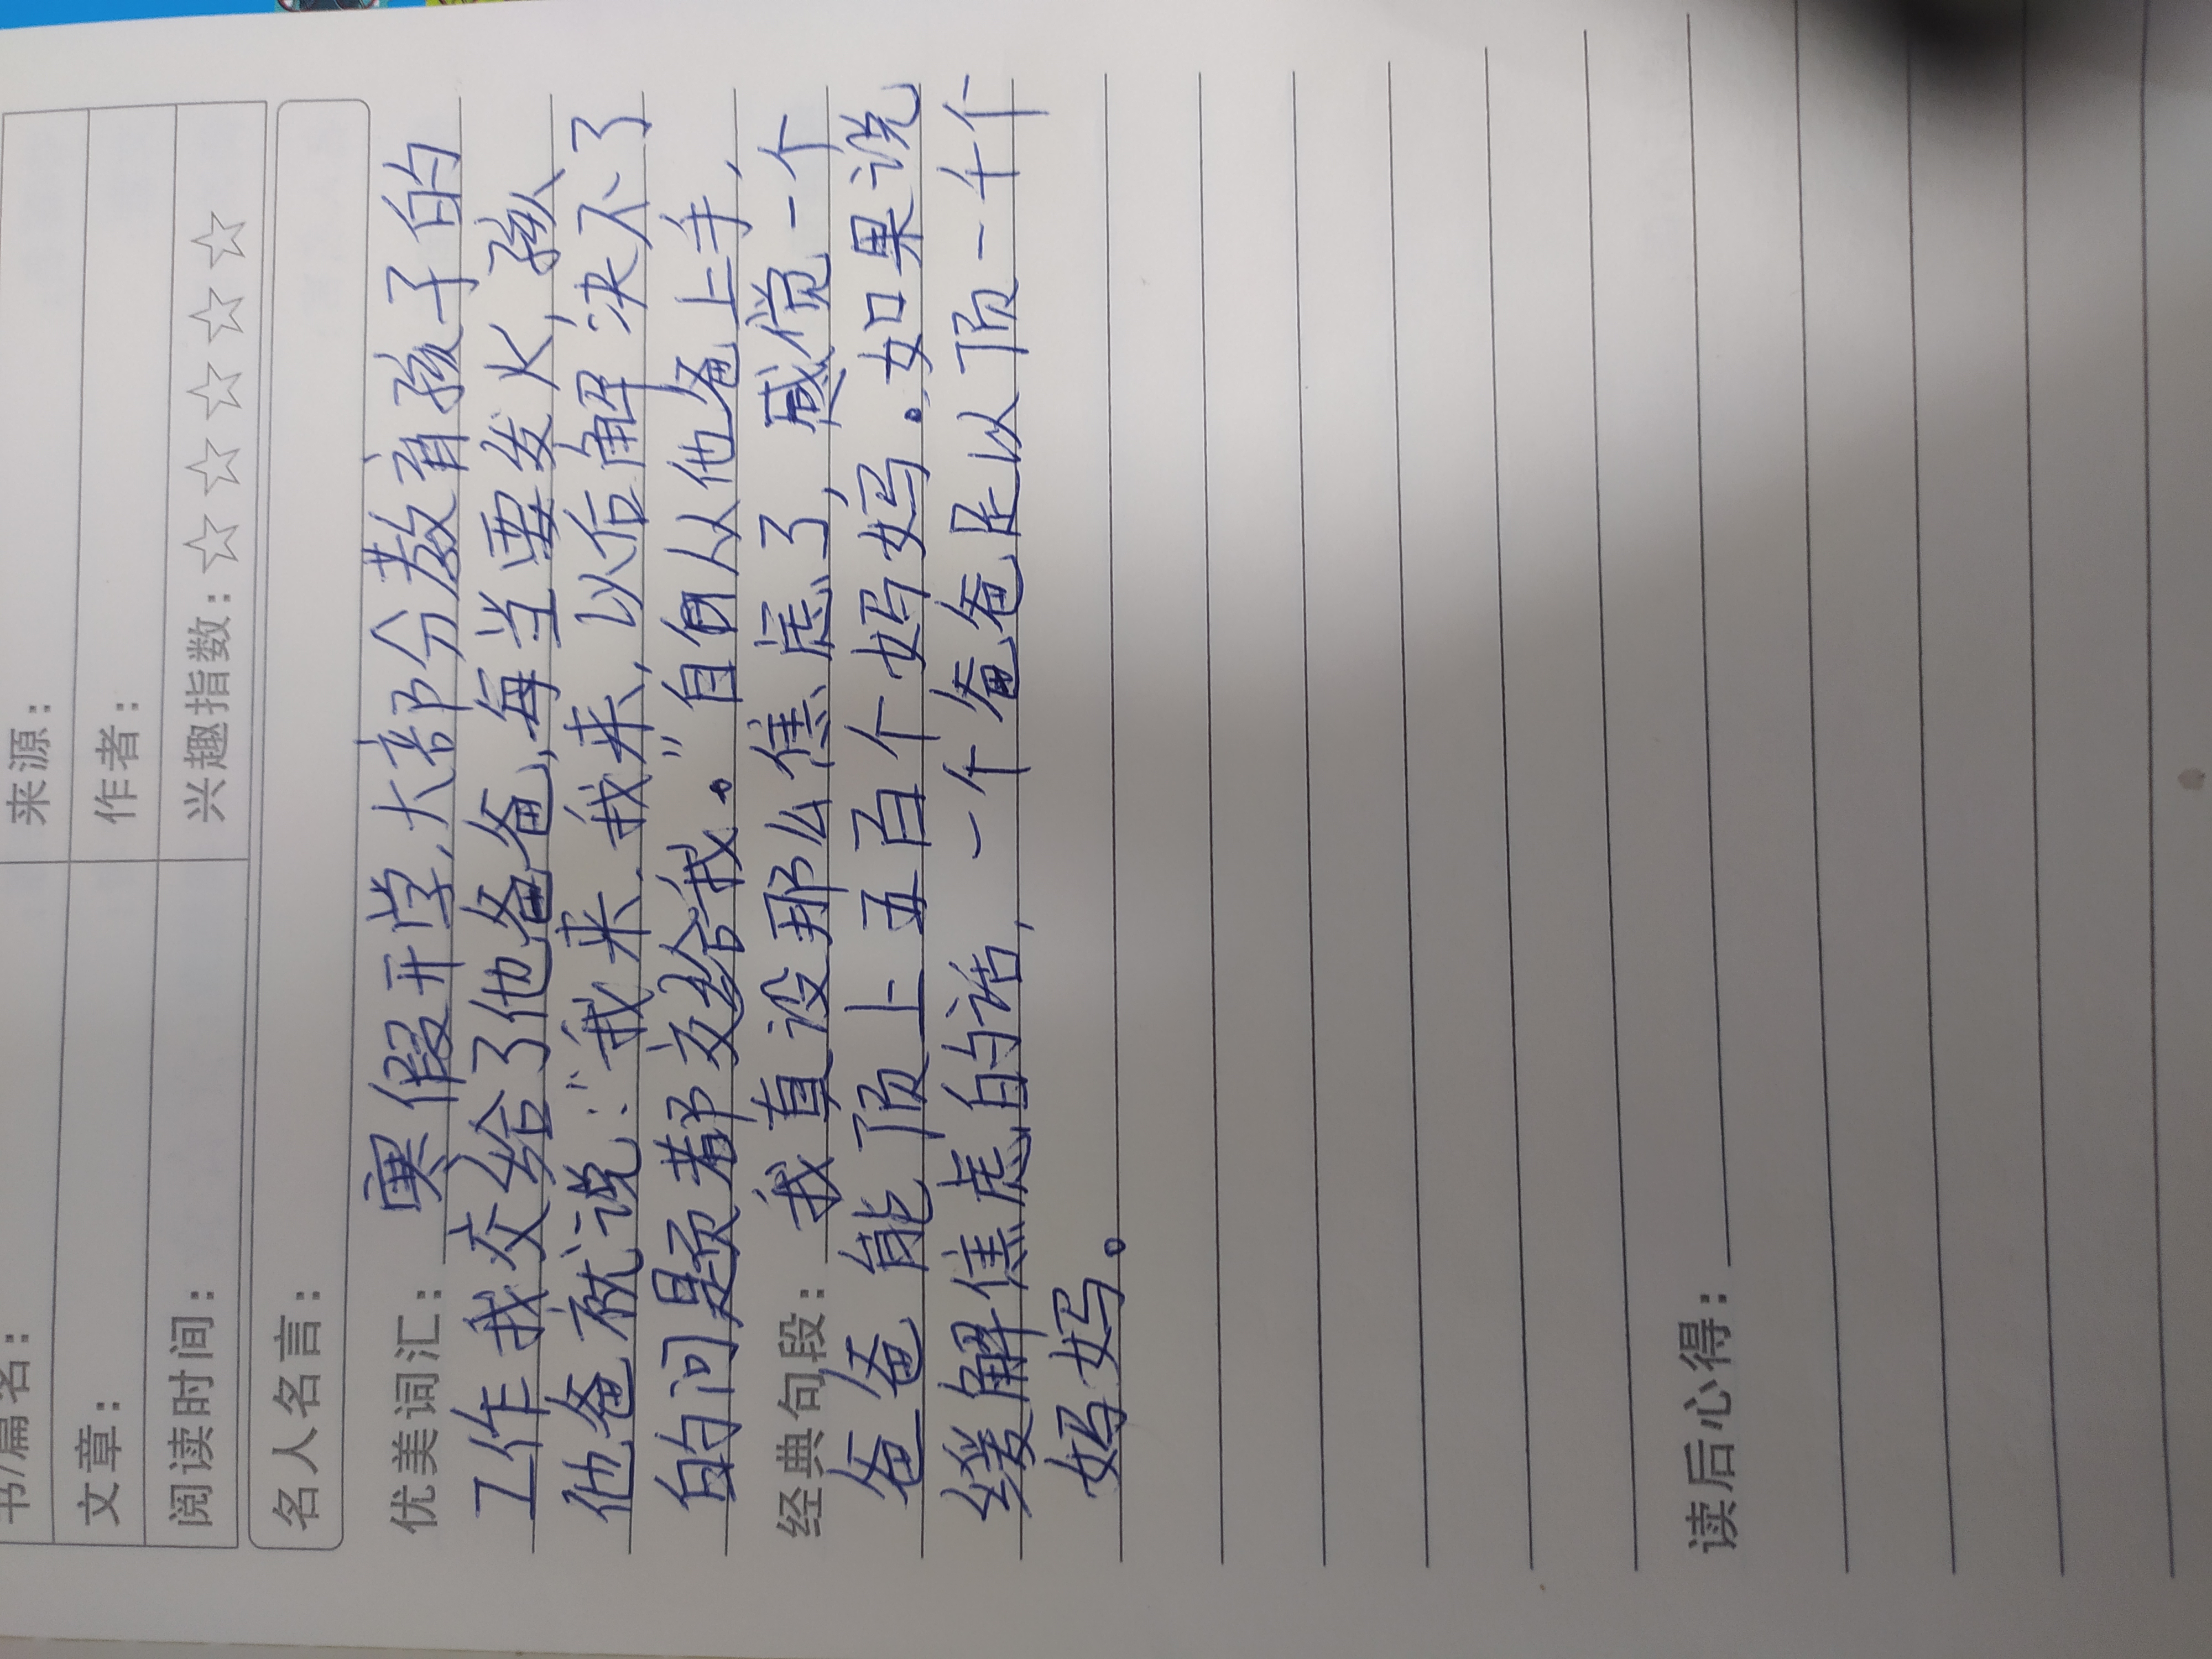 书/篇名： 来源：
文章： 作者：
阅读时间： 兴趣指数：☆☆☆☆☆
名人名言：
优美词汇： 寒假开学,大部分教育孩子的
工作我交给了他爸爸,每当要发火,孩
他爸就说:"我来、我来、我来,以后解决不了
的问题都交给我。"自从他爸上手,
经典句段：我真没那么焦虑了,感觉一个
爸爸能顶上五百个妈妈。如果说
缓解焦虑的话,一个爸爸足以顶一千个
妈妈。
读后心得：